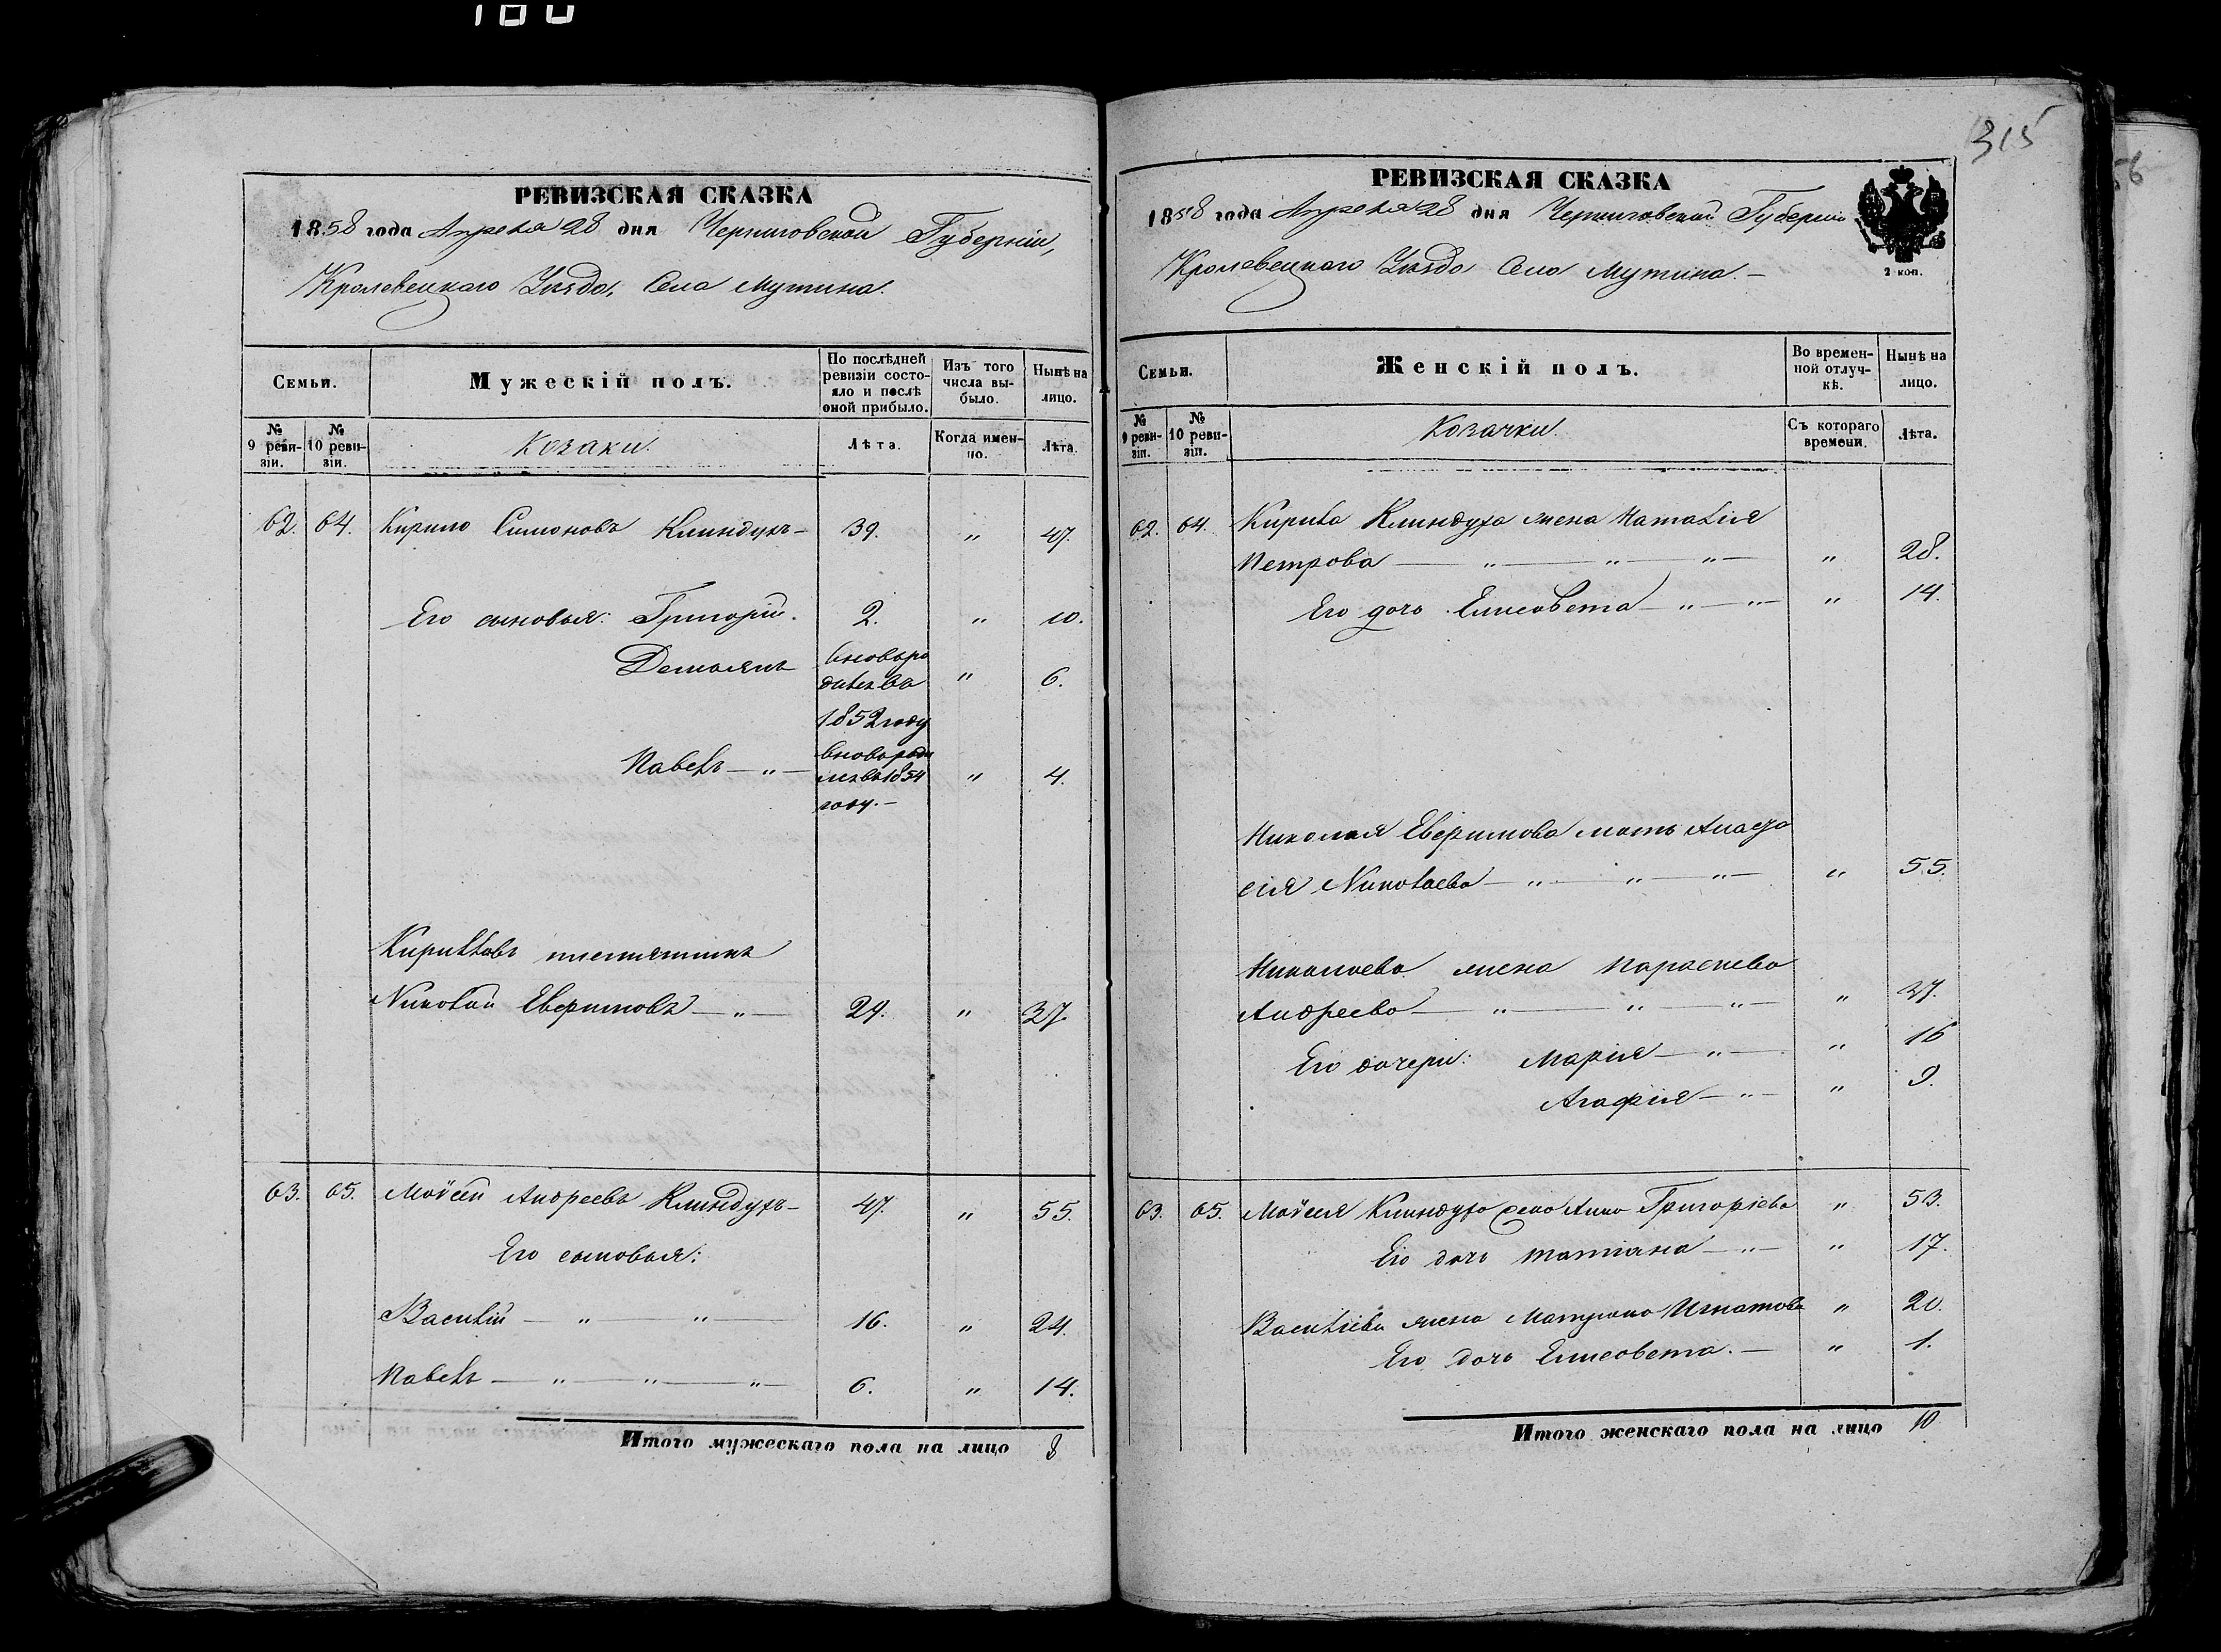 180
РЕВИЗСКАЯ СКАЗКА
1858 года Апреля 28 дня Черниговской Губерніи,
Кролевецкаго Уѣзда, Села Мутина.
Семьи.
Мужескій полъ.
По послѣдней ревизіи состояло и послѣ оной прибыло.
Изъ того числа выбыло.
Нынѣ на лицо.
№ 9 ревизіи.
№ 10 ревизіи.
Козаки.
Лѣта.
Когда именно.
Лѣта.
62. 64. Кирило Симоновъ Клиндухъ — 39. " 47.
Его сыновья: Григорій. 2. " 10.
Демьянъ вновь родился въ 1852 году " 6.
Павелъ — " — вновь родился въ 1854 году. — " 4.
Кирилловъ племянникъ
Николай Евфимовъ — " — 29. " 37.
63. 65. Моисей Андреевъ Клиндухъ — 47. " 55.
Его сыновья:
Василій — " — " — 16. " 24.
Павелъ — " — " — " — 6. " 14.
Итого мужескаго пола на лицо 8
315
РЕВИЗСКАЯ СКАЗКА
1858 года Апреля 28 дня Черниговской Губерніи
Кролевецкаго Уѣзда Села Мутина. —
2 коп.
Семьи.
Женскій полъ.
Во временной отлучкѣ.
Нынѣ на лицо.
№ 9 ревизіи.
№ 10 ревизіи.
Козачки.
Съ котораго времени.
Лѣта.
62. 64. Кирила Клиндуха жена Наталія
Петрова — " — " — " — " 28.
Его дочь Елисавета — " — " — " 14.
Николая Евфимова мать Анаста
сія Николаева — " — " — " — " 55.
Николаева жена Параскева
Андреева — " — " — " — " 37.
Его дочери: Марія — " — " 16
Агафія — " — " 9.
63. 65. Моисея Клиндуха жена Анна Григоріева " 53.
Его дочь Татіана — " — " 17.
Василіева жена Матрона Игнатова " 20.
Его дочь Елисавета. — " 1.
Итого женскаго пола на лицо 10
56